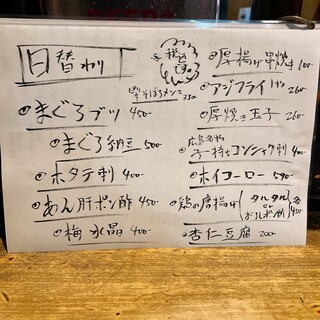 日替わり
税込
そぼろメンマ 350
まぐろブツ 450
まぐろ納豆 500
ホタテ刺 400
あん肝ポン酢 450
梅水晶 400
厚揚げ串焼き 100
アジフライ 260
厚焼き玉子 260
広島名物
子持ちコンニャク刺 400
ホイコーロー 590
鶏の唐揚げ(タルタル or おろしポン酢)各450
杏仁豆腐 200